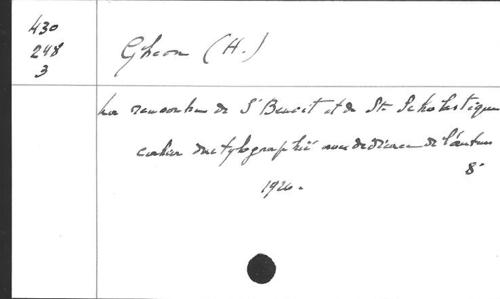 430
248
3
Gheon (H.)
La rencontre de St Benoit et de Ste Scholastique
cahier dactylographié avec dédicace de l'auteur
8°
1926.